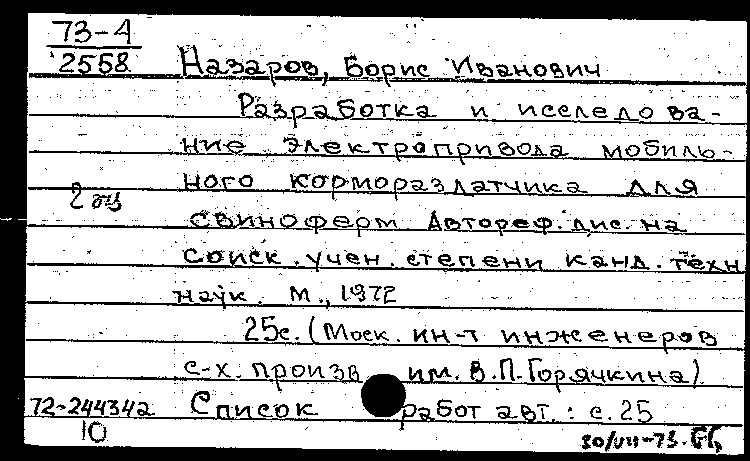 73-4
2558
Назаров, Борис Иванович
Разработка и исследова-
ние электропривода мобиль-
ного кормораздатчика для
2 экз
свиноферм Автореф. дис. на
соиск. учен. степени канд. техн
наук. М., 1972
25с. (Моск. ин-т инженеров
с-х. произв им. В.П. Горячкина)
72-244342 Список работ авт.: с. 25
10
30/VII-73.